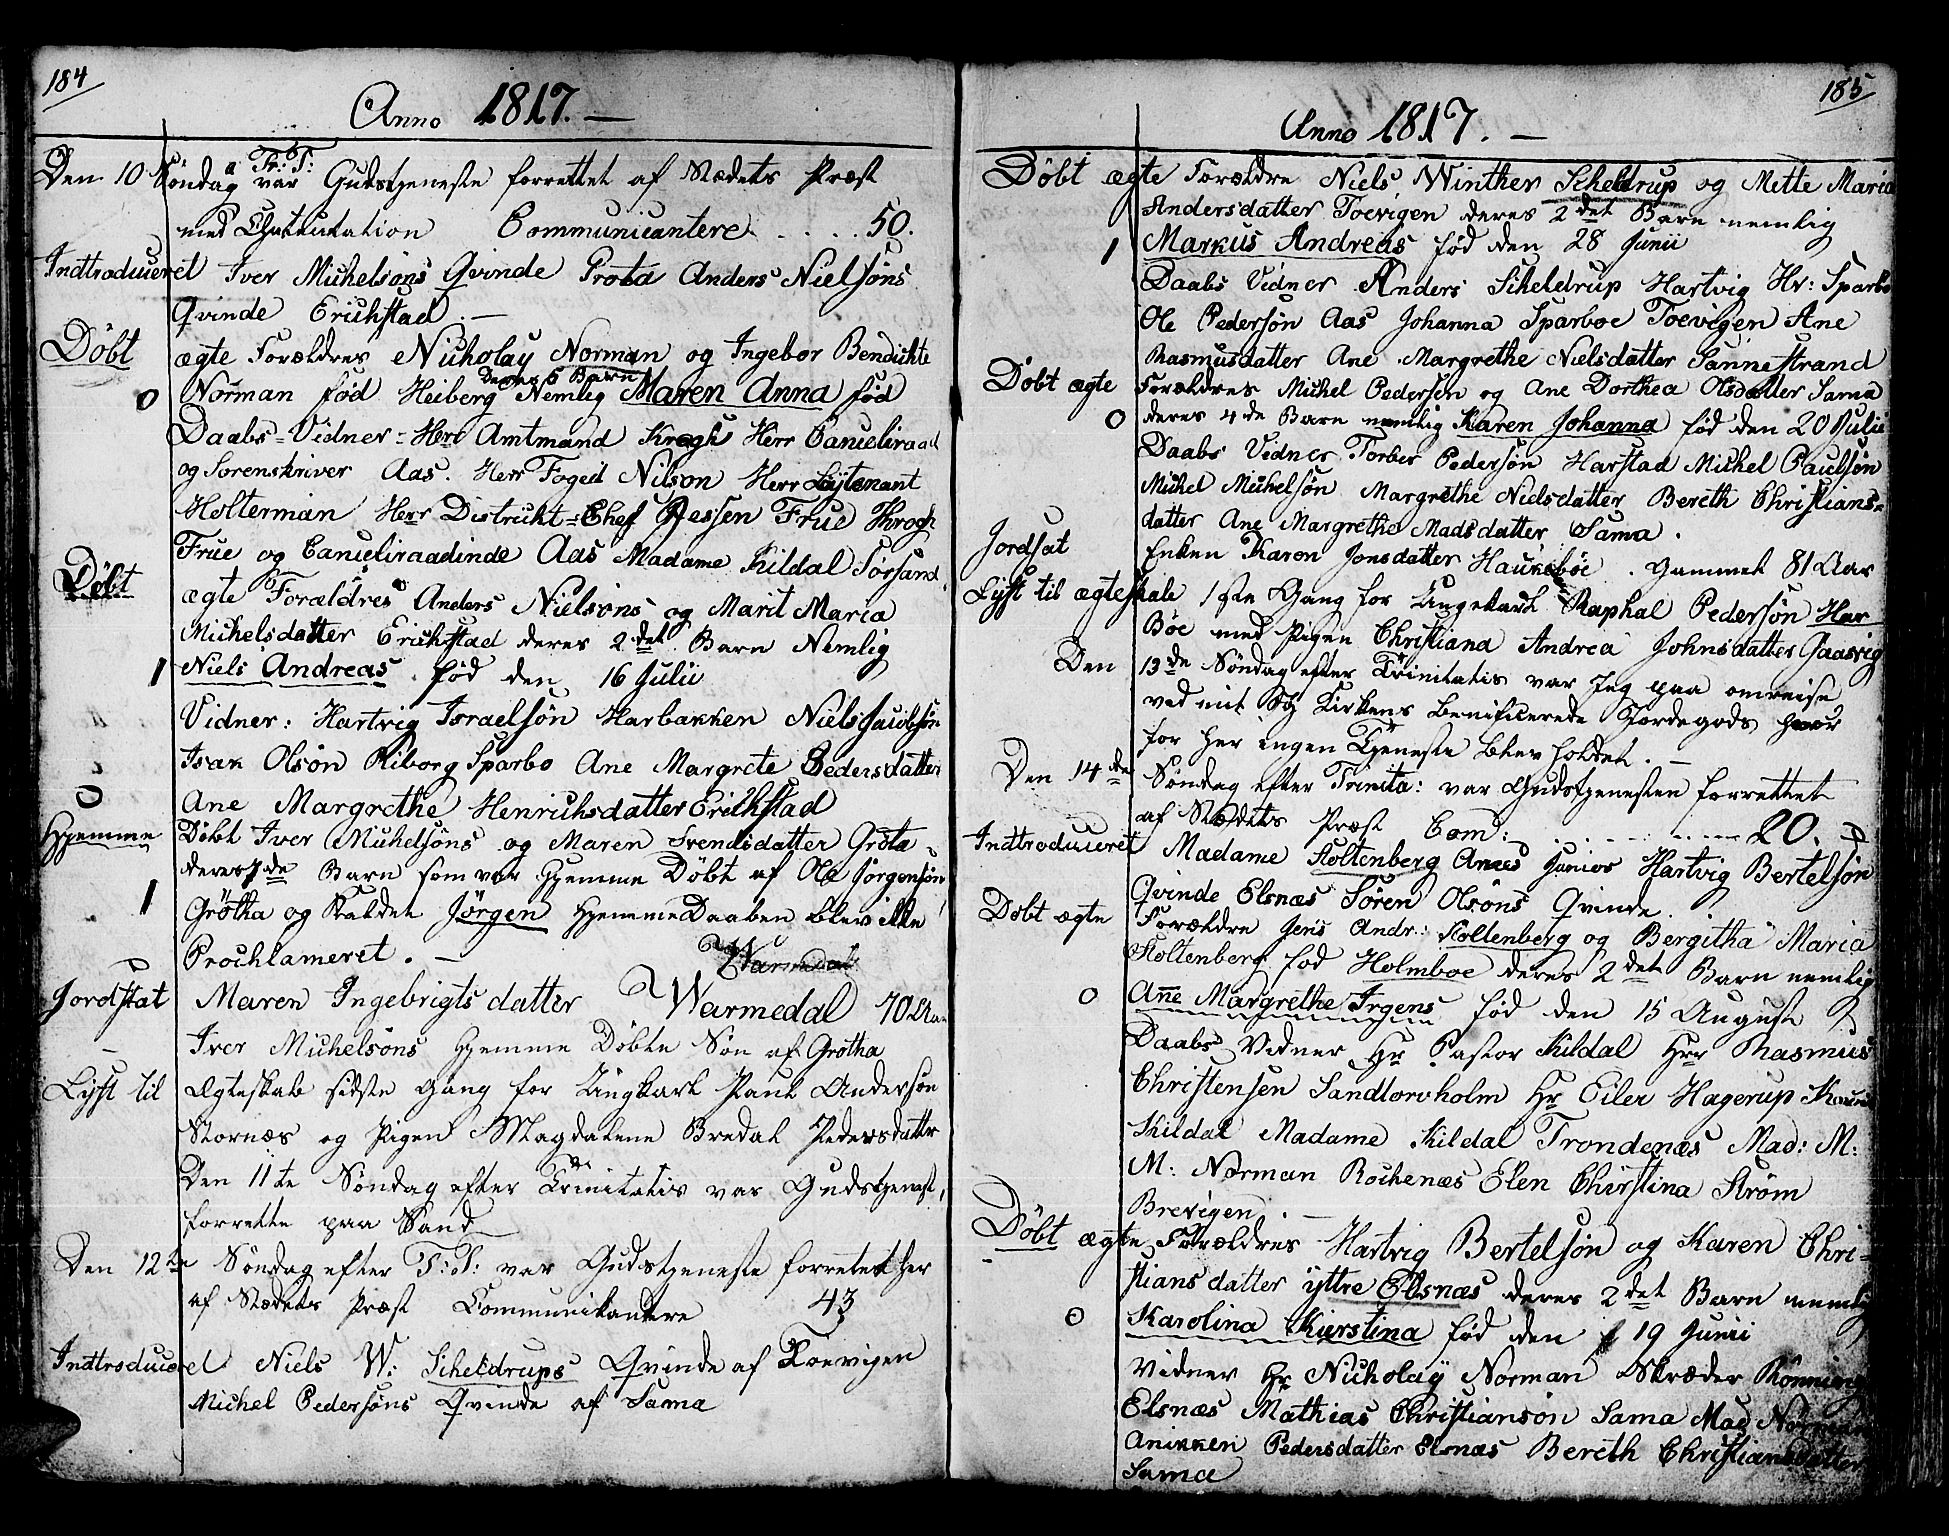 184
Anno 1817. —
Den 10 Søndag a Fr: T: var Gudstjeneste forrettet af Stædets Præst
med Communicantere . . . . . 50.
Indtroduceret Iver Michelsøns Qvinde Grøta Anders Nielsøns
Qvinde Erichstad . —
Døbt ægte Forældres Nicholay Norman og Ingebor Bendichte
Norman fød Heiberg Deres 5 Barn Nemlig Maren Anna fød
0
Daabs-Vidner-Herr Amtmand Krogh Herr Cancelliraad
og Sorenskriver Aas. Herr Foged Nilson Herr Løytenant
Holterman Herr Districkt-Chef Jessen Frue Krogh
Frue og Cancelliraadinde Aas Madame Kildal Sørsand
Døbt ægte Forældres Anders Nielsøns og Marit Maria
Michelsdatter Erichstad deres 2det Barn Nemlig
1 Niels Andreas. fød den 16 Julii
Vidner: Hartvig Israelsøn Harbakken Niels Jacobsøn
Isak Olsøn Kiborg Sparbo Ane Margrete Pedersdatter
0
Ane Margrethe Henrichsdatter Erichstad
Hjemme Døbt Iver Michelsøns og Maren Svendsdatter Grøta
deres 7de Barn som var Hjemme Døbt af Ole Jørgensøn
1 Grøtha og kaldet Jørgen HjemmeDaaben blev ikke
Prochlameret. —
Jordfstat Maren Ingebrigtsdatter Warmedal 70 Aar
Iver Michelsøns Hjemme Døbte Søn af Grøtha
Lyst til Ægteskab sidste gang for Ungkarl Paul Andersøn
Stornæs og Pigen Magdalene Bredal Pedersdatter
Den 11te Søndag efter Trinitatis var Gudstjenest,
forrette paa Sand
Den 12te Søndag efter T: T: var Gudstjeneste forrettet her
af Stædets Præst Communikantere 43
Indtroduceret Niels W: Scheldrups Qvinde af Toevigen
Michel Pedersøns Qvinde af Sama
185
Anno 1817. —
Døbt ægte Forældre Niels Winther Scheldrup og Mette Maria
Andersdatter Toevigen deres 2det Barn nemlig
1 Markus Andreas fød den 28 Junii
Daabs Vidner Anders Scheldrup Hartvig Hr: Sparbo
Ole Pedersøn Aas Johanna Sparboe Toevigen Ane
Rasmusdatter Ane Margrethe Nielsdatter Sannestrand
Døbt ægte Forældres Michel Pedersøn og Ane Dorthea Olsdatter Sama
0 deres 4de Barn nemlig Karen Johanna fød den 20 Julii
Daabs Vidner Torber Pedersøn Harstad Michel Paulsøn
Michel Michelsøn Margrethe Nielsdatter Bereth Christians-
datter Ane Margrethe Madsdatter Sama.
Jordsat Enken Karen Jonsdatter Haukebøe. Gammel 81 Aar
Lyst til ægteskab 1ste Gang for Ungekarl Raphal Pedersøn Har
Bøe med Pigen Christiana Andrea Johnsdatter Gaasvig
Den 13de Søndag efter Trinitatis var Jeg paa omreise
ved mit Kirkens Benificerede Jordegods
for her ingen Tjeneste blev holdet. —
Den 14de Søndag efter Trinita: var Gudstjenesten forrettet
af Stædets Præst Com: . . . . . . . 20.
Indtroduceret Madame Stoltenberg Junior Hartvig Bertelsøn
Qvinde Elsnæs Søren Olsøns Qvinde.
Døbt ægte Forældre Jens Andr: Stoltenberg og Bergitha Maria
Stoltenberg fød Holmboe deres 2det Barn nemlig
0 Anne Margrethe Irgens fød den 15 August
Daabs Vidner Hr Pastor Kildal Hrr Rasmus
Christensen Sandtorvholm Hr Eiler Hagerup
Kildal Madame Kildal Trondenæs Mad: M:
M: Norman Rochenæs Elen Christina Strøm
Brevigen. —
Døbt ægte Forældres Hartvig Bertelsøn og Karen Chri-
stiansdatter yttre Elsnæs deres 2det Barn nemlig
0 Karolina Kierstina fød den 19 Junii
Vidner Hr Nicholay Norman Skræder Rønning
Elsnæs Mathias Christiansøn Sama Mad Norman
Anikken Pedersdatter Elsnæs Bereth Christiansdatter
Sama